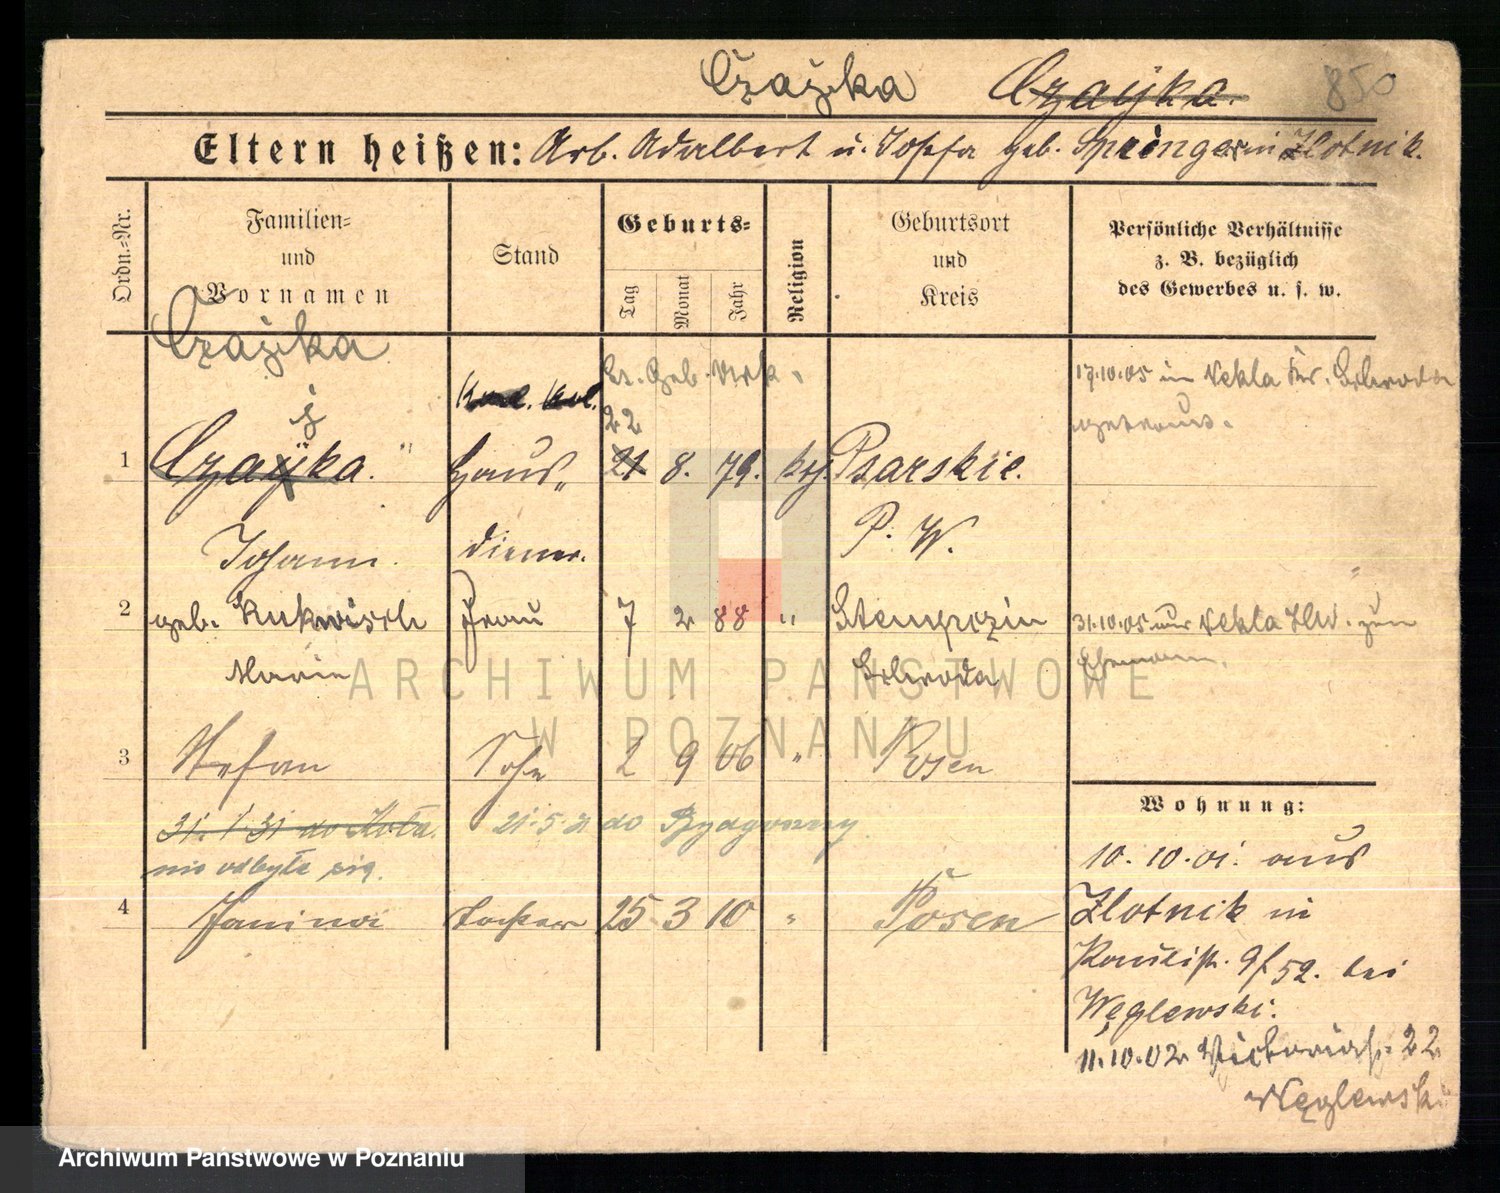 Czajka Czaÿka. 850
Eltern heißen: Arb. Adalbert u. Josefa geb. Springer in Zlotnik.
Ordn.=Nr.
Familien=
und
Vornamen
Stand
Geburts=
Tag
Monat
Jahr
Religion
Geburtsort
und
Kreis
Persönliche Verhältnisse
z. B. bezüglich
des Gewerbes u. s. w.
Czajka
lt. Geb. Urk.
17.10.05 in Nekla Kr. Schroda
getraut.
22
j
1 Czaÿka. Haus= 21 8. 79. kth. Psarskie.
Johann. diener. P. W.
2 geb. Kukwisch Frau 7 2 88 " Stempozin 31.10.05 aus Nekla Hld. zum
Maria Schroda Ehemann.
3 Stefan Sohn 2 9 06 " Posen
31. 1 31 do Koła. 21.5.31 do Bydgoszczy
nie odbyła się.
4 Janina Tochter 25 3 10 " Posen
Wohnung:
10. 10. 01. aus
Zlotnik in
52. bei
Węglewski.
11.10.02 Victoriastr. 22
Węglewski
ARCHIWUM PAŃSTWOWE
W POZNANIU
Archiwum Państwowe w Poznaniu